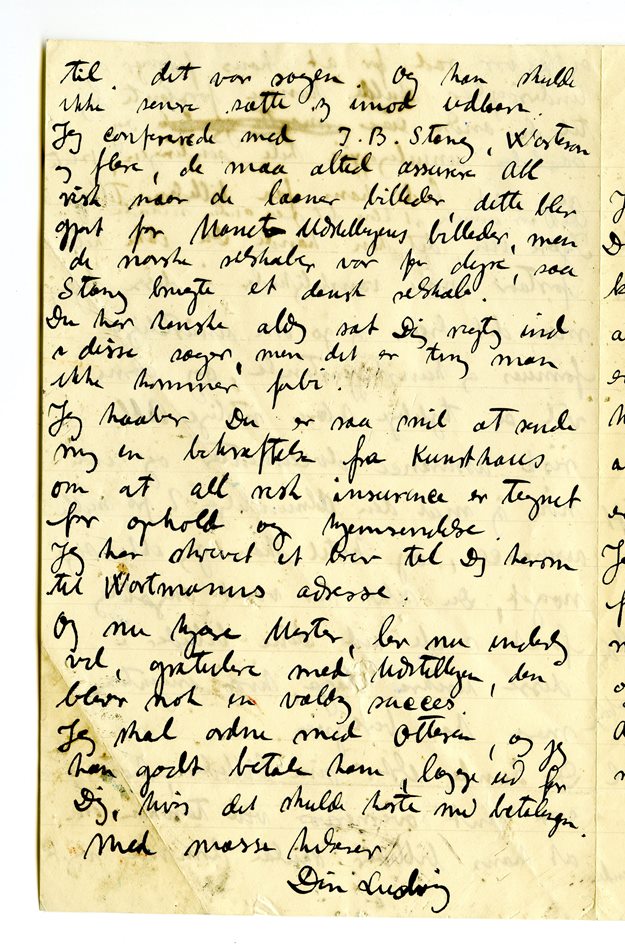 til det var sagen og han skulde
ikke senere sætte sig imod udlaan.
Jeg confererede med J.B. Stang, Wortman
og flere, de maa altid assurere All
risk naar de laaner billeder, dette blev
gjort for Manet Udstillingens billeder, men
de norske selskaber var for dyre, saa
Stang brugte et dansk selskab.
Du har kanske aldrig sat Dig rigtig ind
i disse sager, men det er ting man
ikke kommer forbi.
Jeg haaber Du er saa snil at sende
mig en bekræftelse fra Kunsthaus
om at all risk insurance er tegnet
for ophold og hjemsendelse.
Jeg har skrevet et brev til Dig herom
til Wortmanns adresse.
Og nu kjære Mester, lev nu inderlig
vel, gratulere med Udstillingen, den
bliver nok en vældig succes.
Jeg skal ordne med Ottesen, og jeg
kan godt betale ham, lægge ud for
Dig, hvis det skulde haste med betalingen.
Med masse hilsener
Din Ludvig